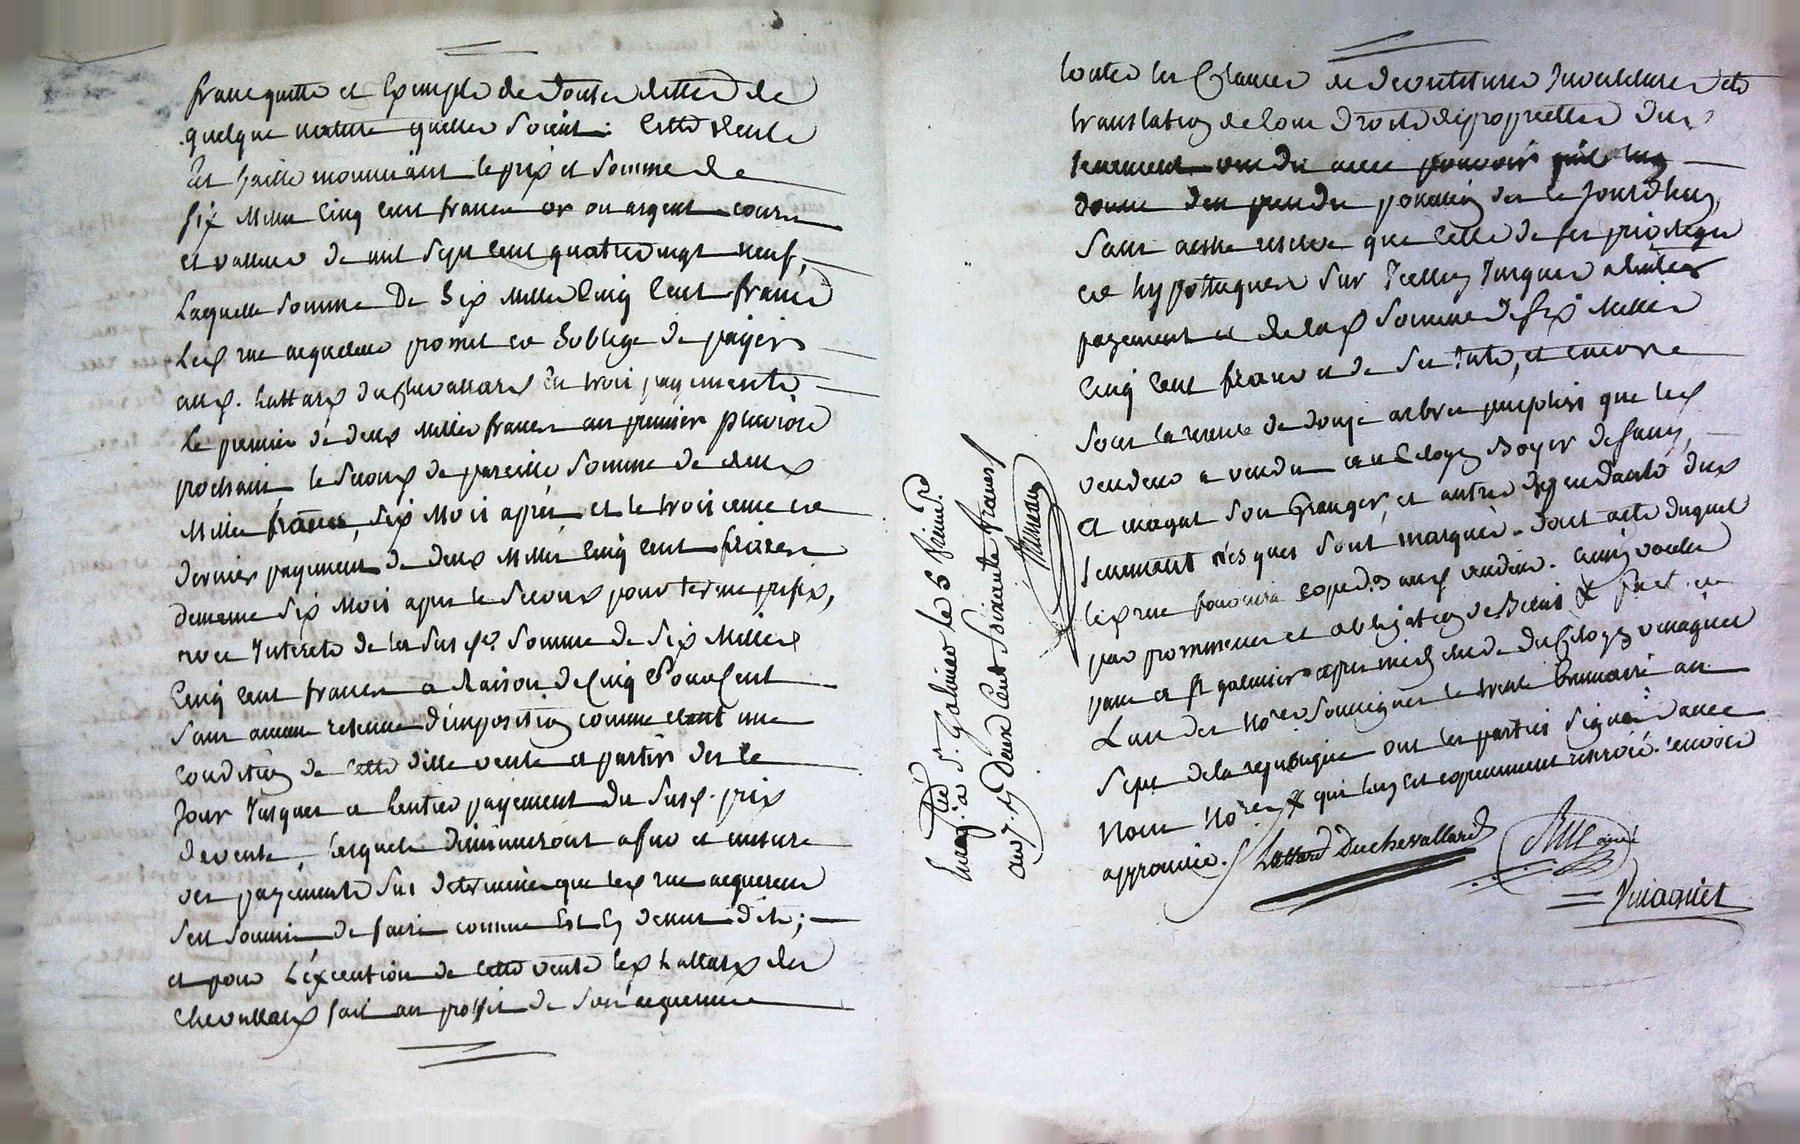 franc quitte et Exempte de toutes dettes de
quelque nature quelles soient: Cette vente
Est faitte moyennant le prix et somme de
six Mille Cinq Cent francs or ou argent cours
et valleur de mil sept Cent quatrevingt neuf,
Laquelle somme De Six Mille Cinq Cent francs
Led rue acquereur promet et soblige de payer
aud. Lattard duchevallard En trois payements
Le premier de deux Mille francs au premier pluviose
prochain le second de pareille somme de deux
Mille francs, six Mois après et le troisieme et
dernier payement de deux Mille Cinq Cent francs
de meme six Mois apres le second pour terme prefix,
avec Interets de la susde somme de six Mille
Cinq Cent francs a Raison de Cinq Pour Cent
sans aucune retenue d'imposition comme etant une
condition de cette ditte vente a partir des ce
Jour Jusques a lentier payement du susd. prix
de vente, lesquels diminueront a fur et mesure
des payements sus determinés que led rue acquereur
sera soumis de faire comme Est Cy dessus dit;
et pour l'éxecution de cette vente led Lattard du
chevallard fait au proffit de son acquereur
toutes les Clauses de devestitures Investitures et
translation de tous droits de proprietté du
tenement vendu avec pouvoir
den prendre possession des ce Jourdhuy,
sans autre reserve que celle de ses privileges
et hypotteques sur Icelluy Jusques a lentier
payement de lad somme de six Mille
Cinq Cent francs et de ses Interets, et encore
sous la reserve de douze arbres peupliers que led
vendeur a vendu au Citoyen Boyer de
et magat son Granger, et autres dependants dud
tenement lesques sont marqués. Dont acte duquel
led rue fournira Exped.on aud vendeur. ainsy voulu
par promesses et obligation de Biens # fait et
passé a St galmier après midy Etude du Citoyen vinagnet
L'un des No.res soussignés le trente brumaire an
sept de la republique ont les parties signé: Avec
Nous No.res # qui luy est expressement reservé. renvoi
approuvé. Lattard Duchevallard Rue ainé
Vinagnet
Enreg. à St. Galmier le 5 frim.re
an 7. Deux Cent soixante francs